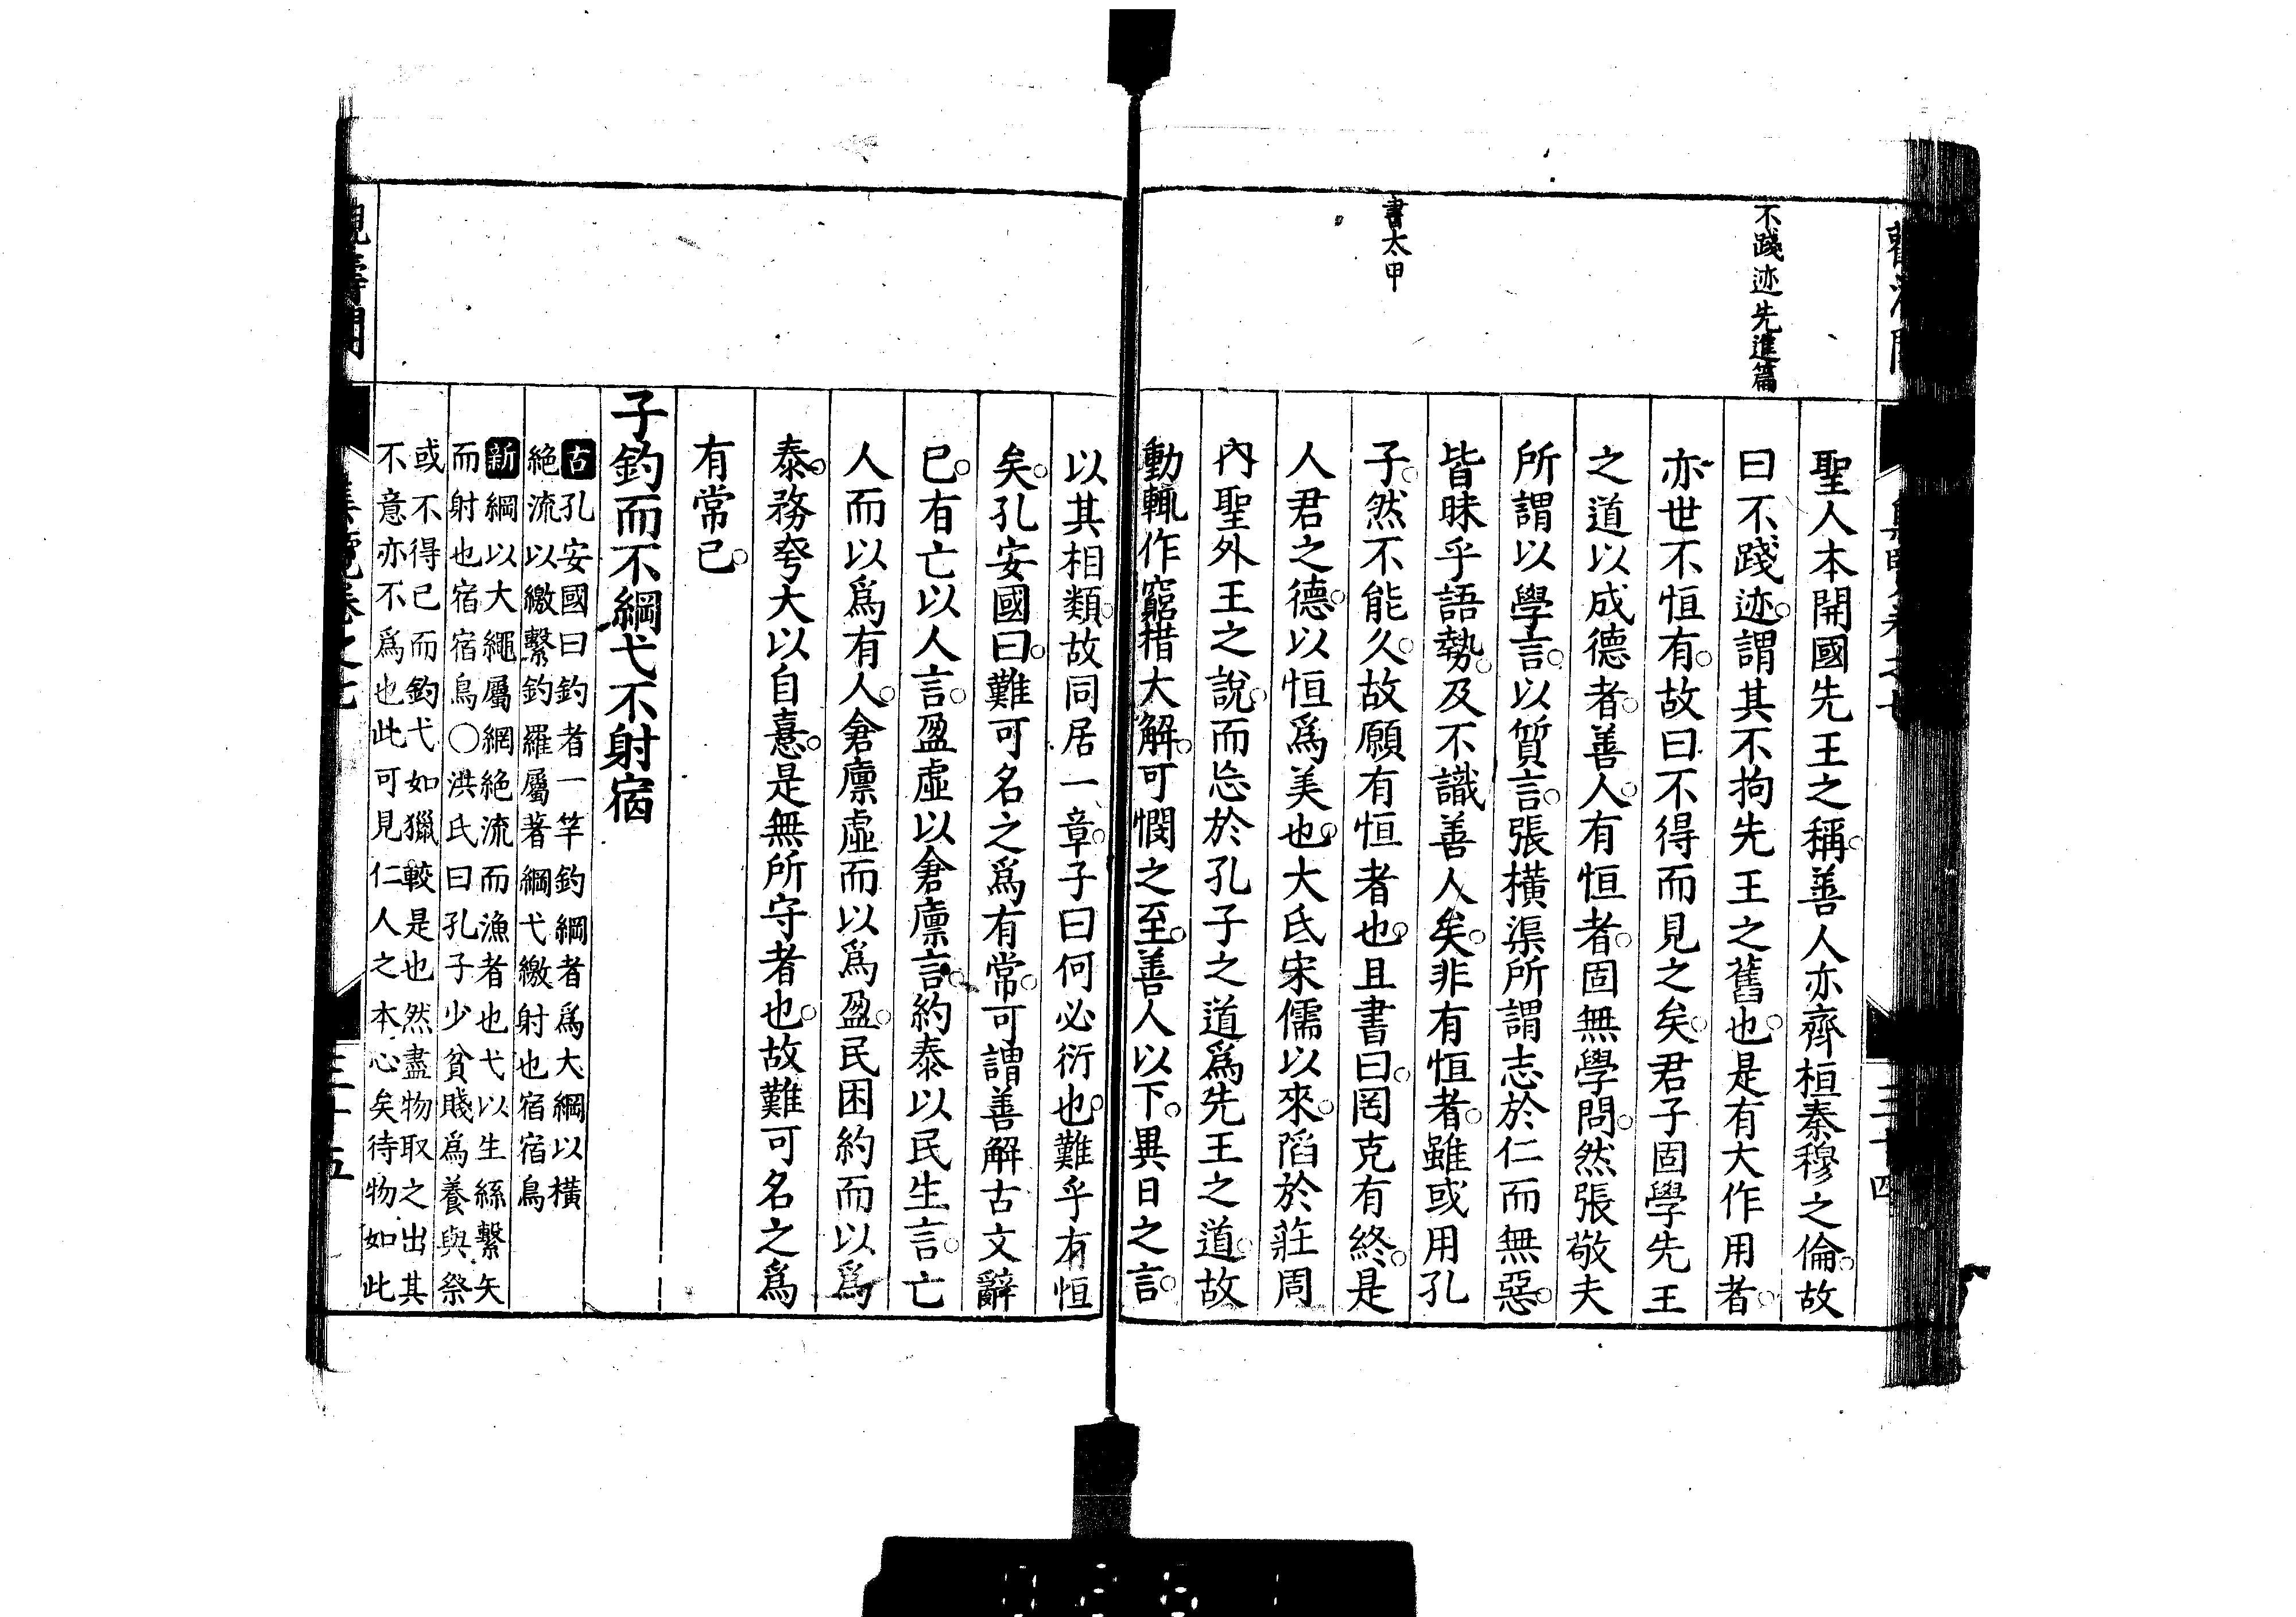 不踐迹先進篇
書太甲
聖人本開國先王之稱。善人亦齊桓秦穆之倫。故
曰不踐迹。謂其不拘先王之舊也。是有大作用者。
亦世不恒有。故曰不得而見之矣。君子固學先王
之道以成德者。善人。有恒者。固無學問。然張敬夫
所謂以學言。以質言。張橫渠所謂志於仁而無惡。
皆昧乎語勢。及不識善人矣。非有恒者。雖或用孔
子。然不能久。故願有恒者也。且書曰。罔克有終。是
人君之德。以恒爲美也。大氐宋儒以來。陷於莊周
內聖外王之說。而忘於孔子之道爲先王之道。故
動輒作窮措大解。可憫之至。善人以下。異日之言。
以其相類。故同居一章。子曰何必衍也。難乎有恒
矣。孔安國曰。難可名之爲有常。可謂善解古文辭
已。有亡以人言。盈虛以倉廩言。約泰以民生言。亡
人而以爲有人。倉廩虛而以爲盈。民困約而以爲
泰。務夸大以自憙。是無所守者也。故難可名之爲
有常已。
子釣而不綱弋不射宿
古孔安國曰釣者一竿釣綱者爲大綱以橫
絶流以繳繫釣羅屬著綱弋繳射也宿宿鳥
新綱以大繩屬網絶流而漁者也弋以生絲繫矢
而射也宿宿鳥○洪氏曰孔子少貧賤爲養與祭
或不得已而釣弋如獵較是也然盡物取之出其
不意亦不爲也此可見仁人之本心矣待物如此
三十五